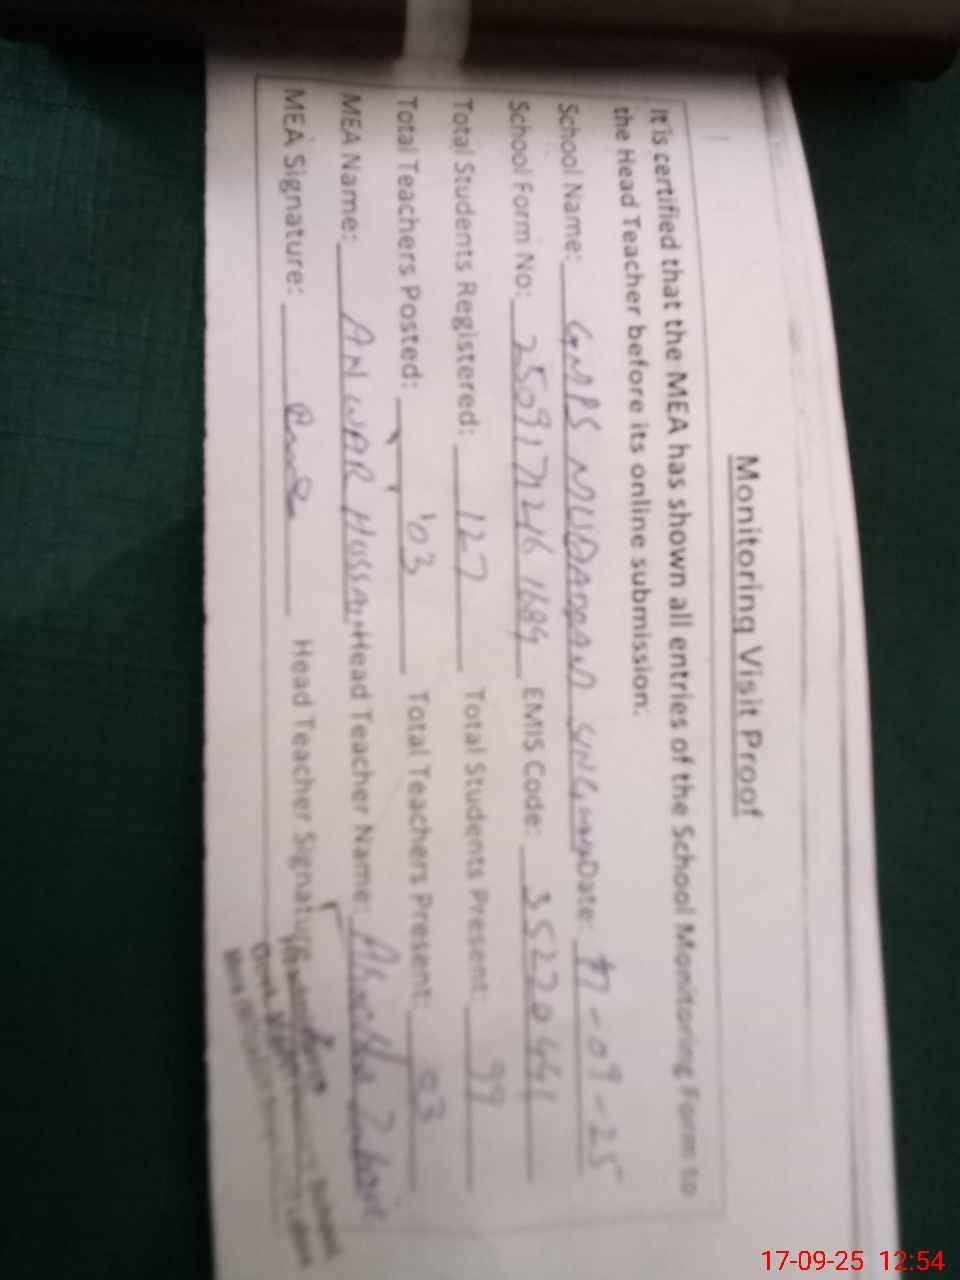 Monitoring Visit Proof
It is certified that the MEA has shown all entries of the School Monitoring Form to
the Head Teacher before its online submission.
School Name: GMPS NUDADDAN Date: 17-09-25
School Form No: 25091721616 1689 EMIS Code: 35220441
Total Students Registered: 127 Total Students Present: 99
Total Teachers Posted: 03 Total Teachers Present: 03
MEA Name: ANWAR HUSSAIN Head Teacher Name:
MEA Signature: Head Teacher Signature
School
17-09-25 12:54